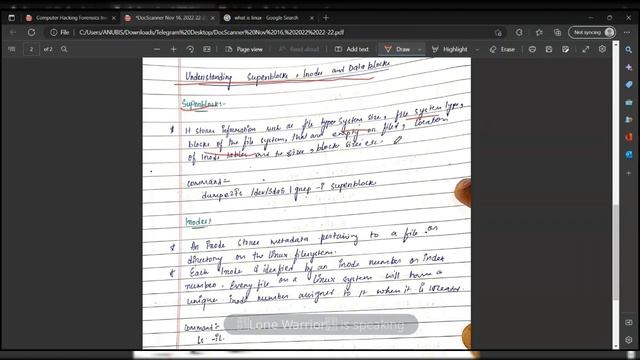 Computer Hacking Forensics Inv
*DocScanner Nov 16, 2022 22-
what is linux - Google Search
File
C:/Users/ANUBIS/Downloads/Telegram%20Desktop/DocScanner%20Nov%2016,%202022%2022-22.pdf
Not syncing
2 of 2
Draw
Read aloud
Understanding Superblocks, Inodes and Data blocks
Superblock:-
It stores information such as file type, system size, file system type,
blocks of the file system, that are empty on filed, location
of Inode tables and its size, block sizes etc.
command =
dumpe2fs /dev/sda3 | grep -i superblock
Inodes:-
An Inode stores metadata pertaining to a file or
directory on the Linux filesystem.
Each Inode is identified by an inode number or index
number. Every file on a Linux system will have a
unique inode number assigned to it when it is created.
Lone Warrior is speaking
command =
ls -il